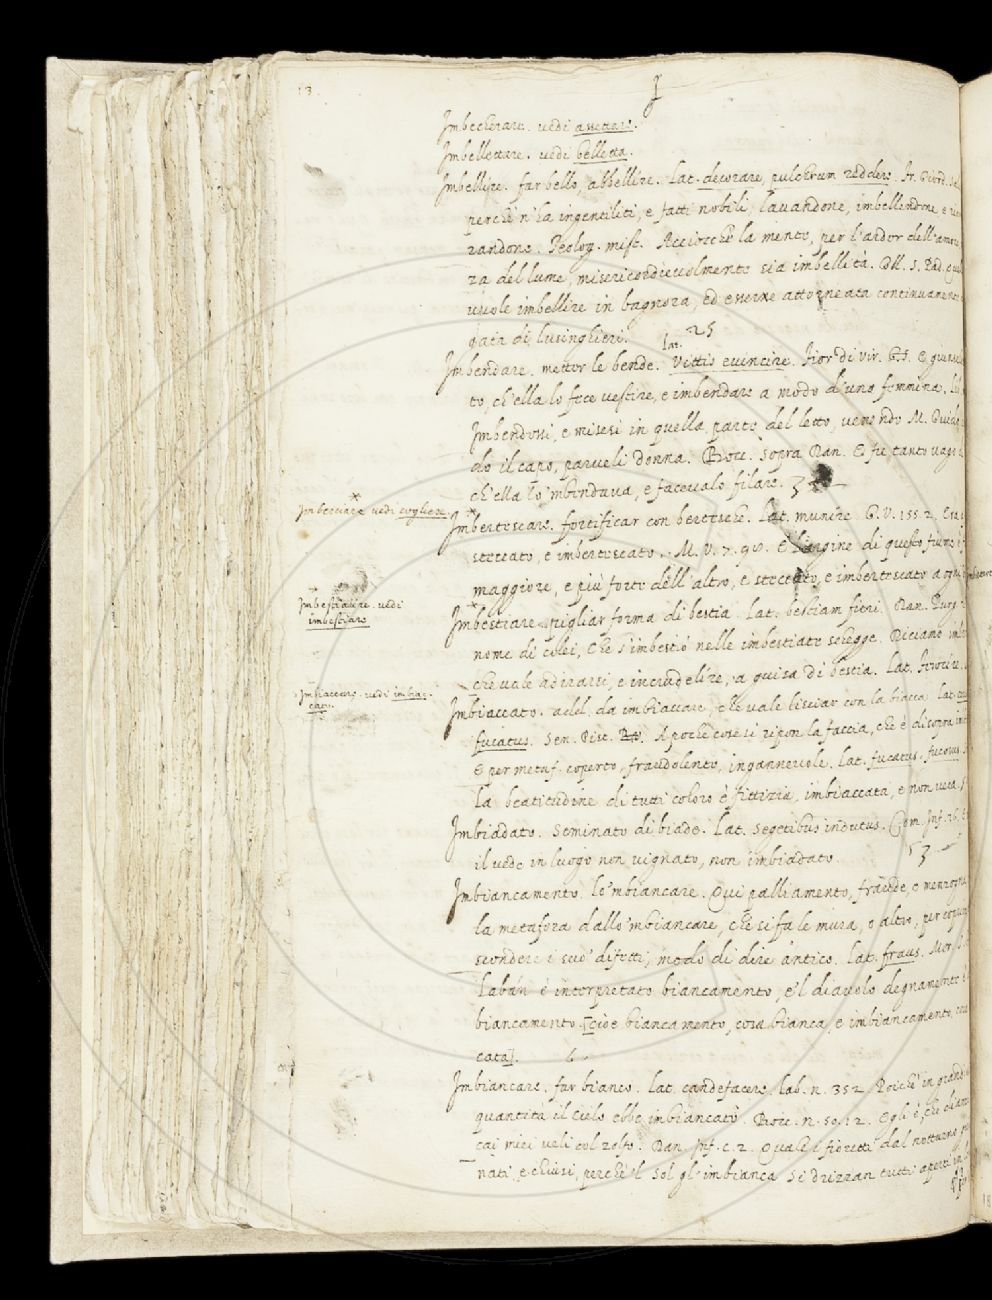 13
I
Imbecherare. vedi assettare.
Imbellettare. vedi belletta.
Imbellire. far bello, abbellire. Lat. decorare, pulchrum reddere. Fr. Giord.
perchè n'ha ingentiliti, e fatti nobili, lavandone, imbellendone, e
randone. Teolog. mist. Acciocchè la mente, per l'ardor dell'amore
za del lume, misericordievolmente sia imbellita.
vuole imbellire in bagnora, ed essere attorneata continuamente
gata di lusinghieri.
25
Imbendare. mettor le bende. Lat. Vittis evincire. Fior di vir.
to, ch'ella lo fece vestire, e imbendare a modo d'una femmina.
Imbendossi, e misesi in quella parte del letto, venendo M.
do il capo, parveli donna. Bocc. sopra Dan. E fu tanto vago
ch'ella lo 'mbendava, e facevalo filare.
Imberciare vedi cogliere.
Imbertescare. fortificar con bertesche. Lat. munire. G. V. 155. 2.
steccato, e imbertescato. M. V. 7. 98. E l'argine di questo fiume
maggiore, e più forte dell'altro, e steccato, e imbertescato a ogni
Imbestialire. vedi
imbestiare
Imbestiare. pigliar forma di bestia. Lat. bestiam fieri. Dan. Purg.
nome di colei, che s'imbestiò nelle imbestiate schegge. Diciamo
che vale adirarsi, e incrudelire, a guisa di bestia. Lat.
Imbiaccare. vedi imbiac-
cato.
Imbiaccato. add. da imbiaccare, che vale lisciar con la biacca. Lat.
fucatus. Sen. Pist. A poche cose si ripon la faccia, che è di sopra
E per metaf. coperto, fraudolento, ingannevole. Lat. fucatus, fucosus.
La beatitudine di tutti coloro è fittizia, imbiaccata, e non vera.
Imbiadato. seminato di biade. Lat. segetibus indutus. Com. Inf. 26.
il vede in luogo non vignato, non imbiadato.
53
Imbiancamento. lo 'mbiancare. Qui palliamento, fraude, e menzogna
la metafora dallo 'mbiancare, che si fa le mura, o altro, per coprire
scondere i suo' difetti, modo di dire antico. Lat. fraus. Mor.
Laban è interpretato biancamento, e 'l diavolo degnamente
biancamento. [cioè biancamento, cosa bianca, e imbiancamento, cosa
cata].
Imbiancare. far bianco. Lat. candefacere. Lab. n. 352. Poichè in grandissima
quantità il cielo ebbe imbiancato. Bocc. n. 50. 12. Egli è, che dianzi
cai miei veli col zolfo. Dan. Inf. c. 2. Quali i fioretti dal notturno
nati, e chiusi, perchè 'l Sol gl'imbianca si drizzan tutti aperti in